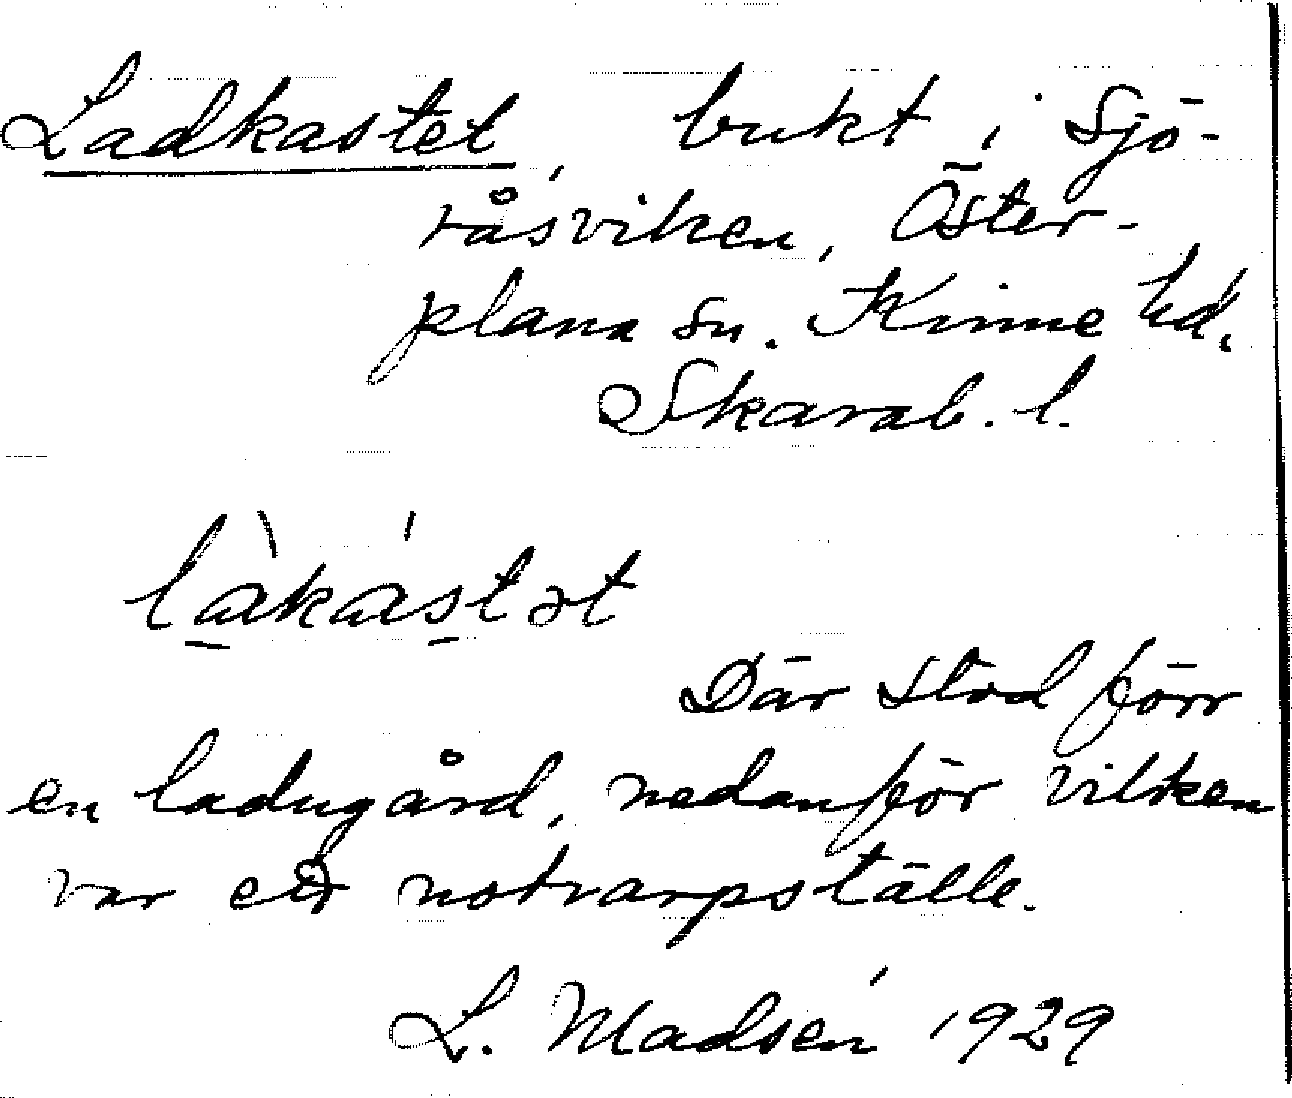 Ladkastet, bukt i Sjö-
råsviken, Öster-
plana sn. Kinne hd,
Skarab. l.
là̱káṣtət
Där stod förr
en ladugård, nedanför vilken
var ett notvarpställe.
L. Madsén 1929